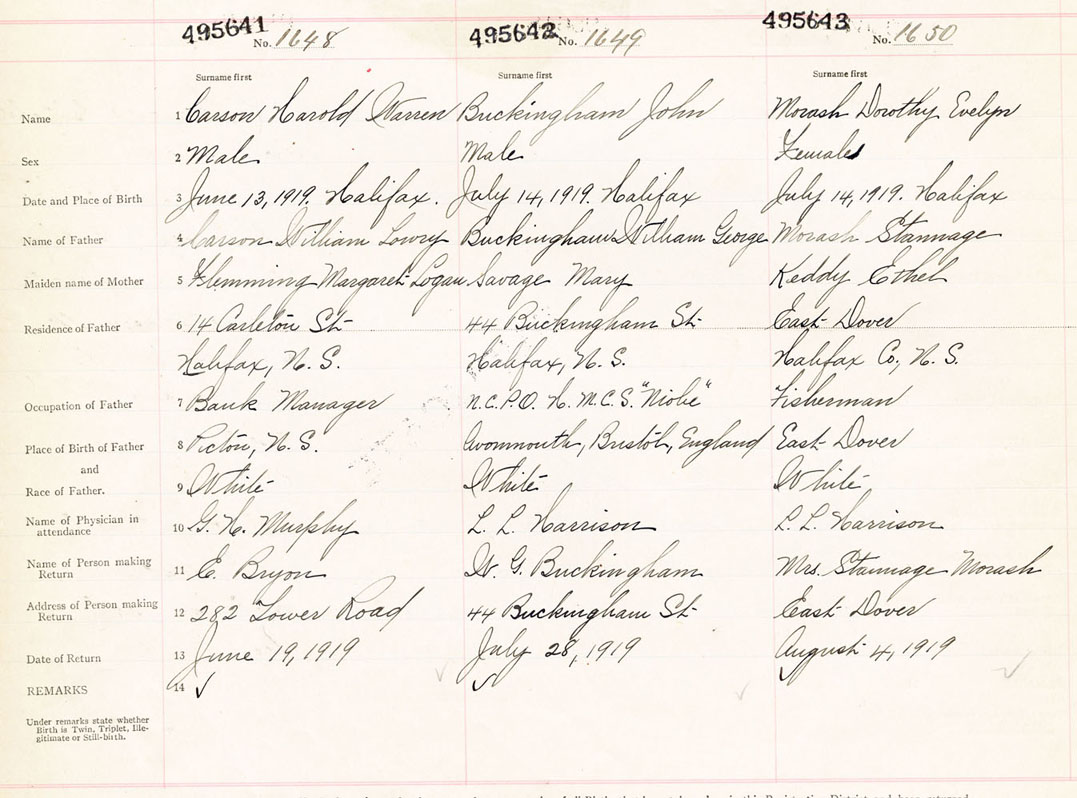 495641 No. 1648 495642 No. 1649 495643 No. 1650
Surname first Surname first Surname first
Name 1 Carson Harold Warren Buckingham John Morash Dorothy Evelyn
Sex 2 Male Male Female
Date and Place of Birth 3 June 13, 1919. Halifax. July 14, 1919. Halifax July 14, 1919. Halifax
Name of Father 4 Carson William Lowry Buckingham William George Morash Stannage
Maiden name of Mother 5 Flemming Margaret Logan Savage Mary Keddy Ethel
Residence of Father 6 14 Carleton St 44 Buckingham St East Dover
Halifax, N.S. Halifax, N.S. Halifax Co, N.S.
Occupation of Father 7 Bank Manager N.C.P.O. H.M.C.S. "Niobe" Fisherman
Place of Birth of Father 8 Pictou, N.S. Avonmouth, Bristol, England East Dover
and
Race of Father. 9 White White White
Name of Physician in
attendance 10 G. H. Murphy L. L. Harrison L. L. Harrison
Name of Person making
Return 11 E. Bryon W. G. Buckingham Mrs. Stannage Morash
Address of Person making
Return 12 282 Tower Road 44 Buckingham St East Dover
Date of Return 13 June 19, 1919 July 28, 1919 August 4, 1919
REMARKS 14 ✓ ✓ ✓
Under remarks state whether
Birth is Twin, Triplet, Ille-
gitimate or Still-birth.